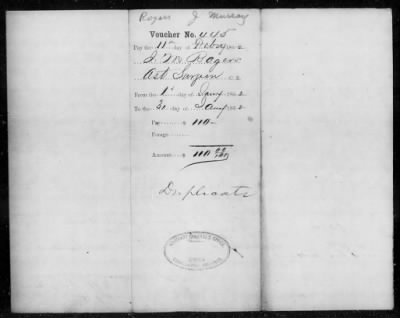 Rogers J Murray
Voucher No. 445
Pay the 11th day of Febry 1862
J. M. Rogers
Ast Surgeon C.S
From the 1st day of Jany 1862
To the 31 day of Jany 1862
Pay $ 110-
Forage
Amount $ 110
Duplicate